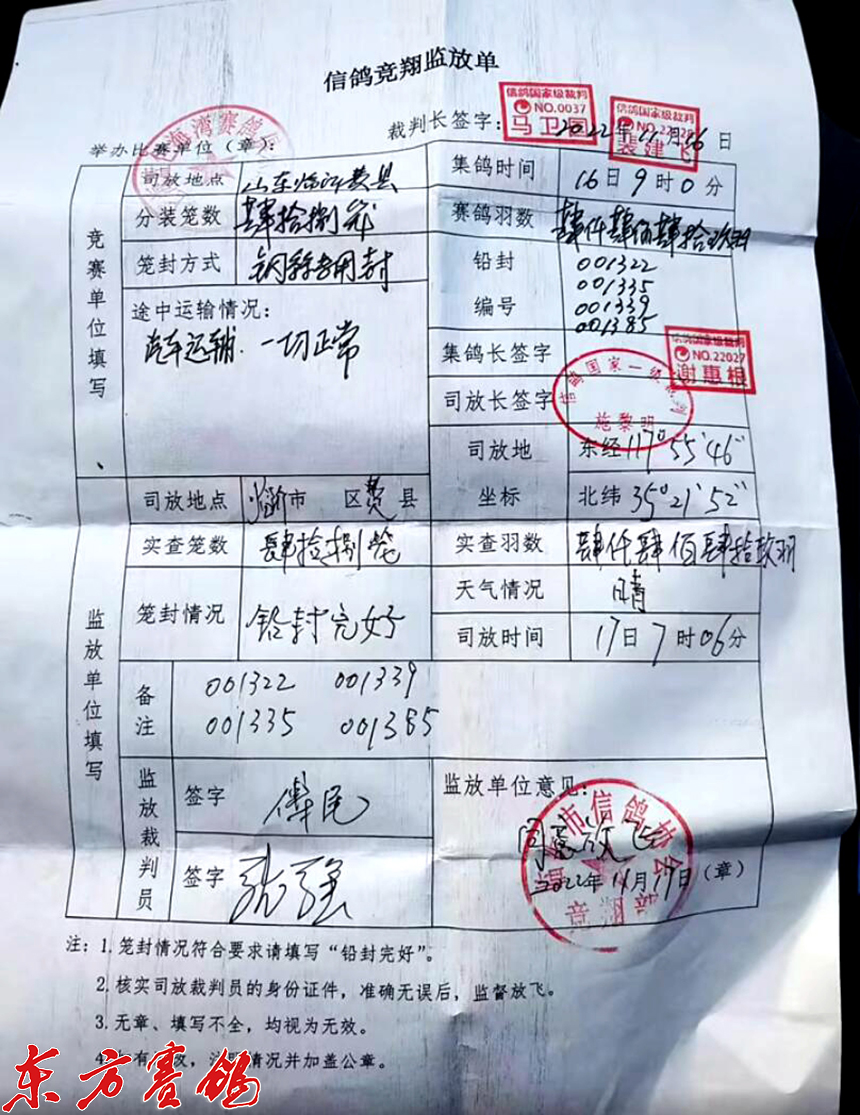 信鸽竞翔监放单
信鸽国家级裁判
NO.0037
马卫国
信鸽国家级裁判
裴建飞
裁判长签字: 2022年11月16日
举办比赛单位(章):
海湾赛鸽
竞赛单位填写
司放地点 山东临沂费县
集鸽时间 16日9时0分
分装笼数 肆拾捌笼
赛鸽羽数 肆仟肆佰肆拾玖羽
笼封方式 钢丝专用封
铅封编号 001322
001335
001339
001385
途中运输情况:
汽车运输.一切正常
集鸽长签字
信鸽国家级裁判
NO.22027
谢惠根
司放长签字
信鸽国家一级裁判
施黎明
司放地坐标 东经117°55′46″
北纬35°21′52″
监放单位填写
司放地点 临沂市 区费县
实查笼数 肆拾捌笼
实查羽数 肆仟肆佰肆拾玖羽
笼封情况 铅封完好
天气情况 晴
司放时间 17日7时06分
备注
001322 001339
001335 001385
监放裁判员
签字
签字 张强
监放单位意见:
同意放飞
海市信鸽协会
竞翔部
2022年11月17日(章)
注:1.笼封情况符合要求请填写“铅封完好”。
2.核实司放裁判员的身份证件,准确无误后,监督放飞。
3.无章、填写不全,均视为无效。
情况并加盖公章。
东方赛鸽